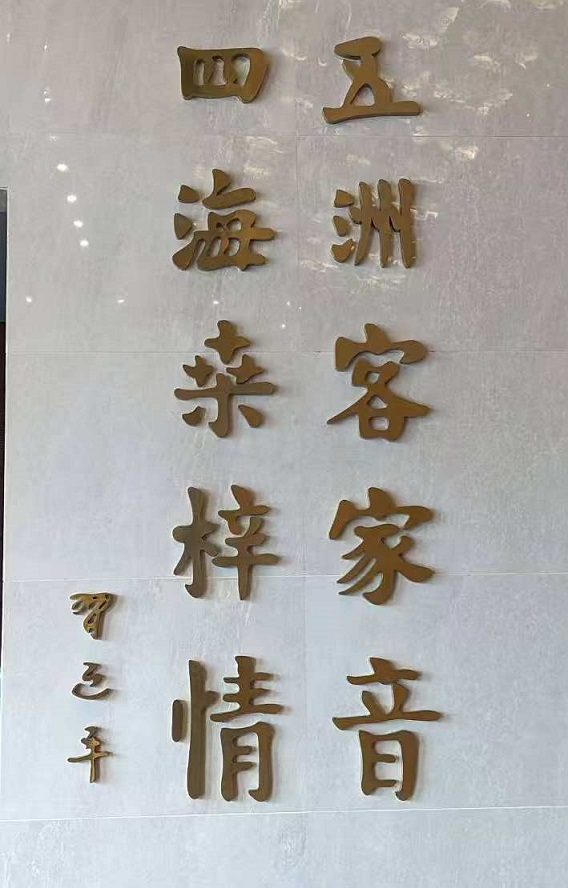 五洲客家音
四海桒梓情
习迈平